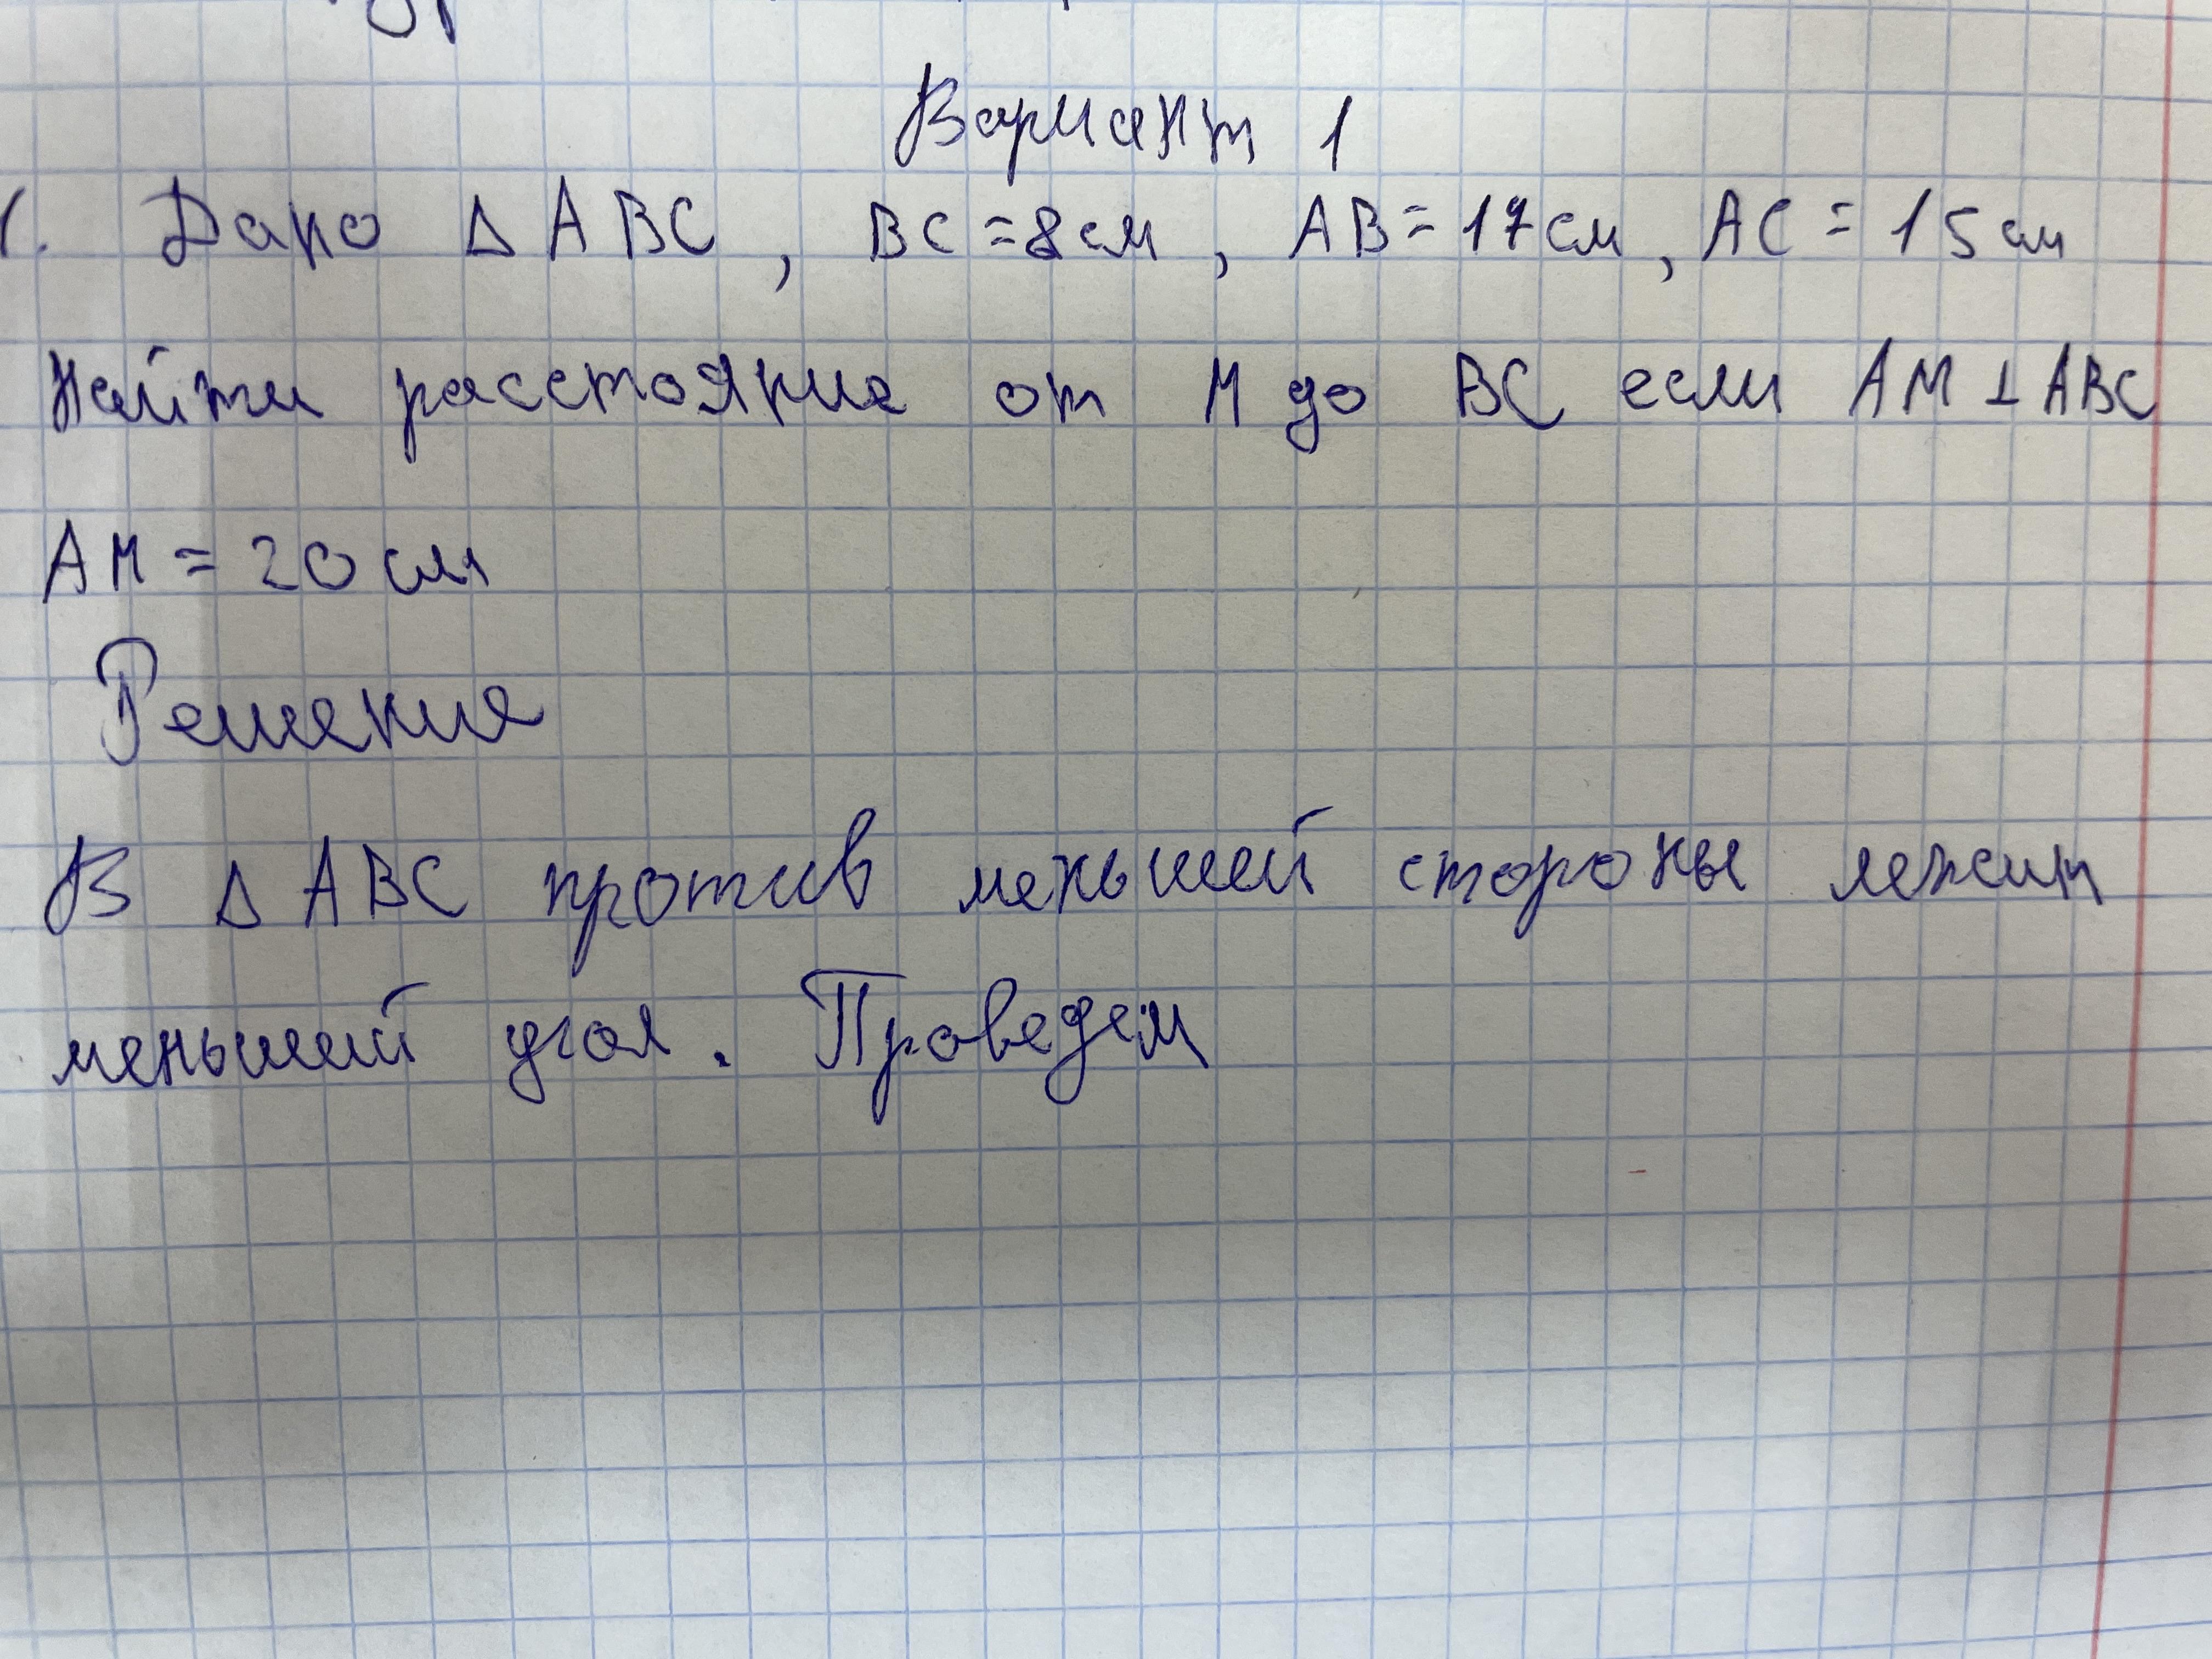 Вариант 1
1. Дано Δ ABC, BC = 8 см, AB = 17 см, AC = 15 см
Найти расстояние от M до BC если AM ⊥ ABC
AM = 20 см
Решение
В Δ ABC против меньшей стороны лежит
меньший угол. Проведем